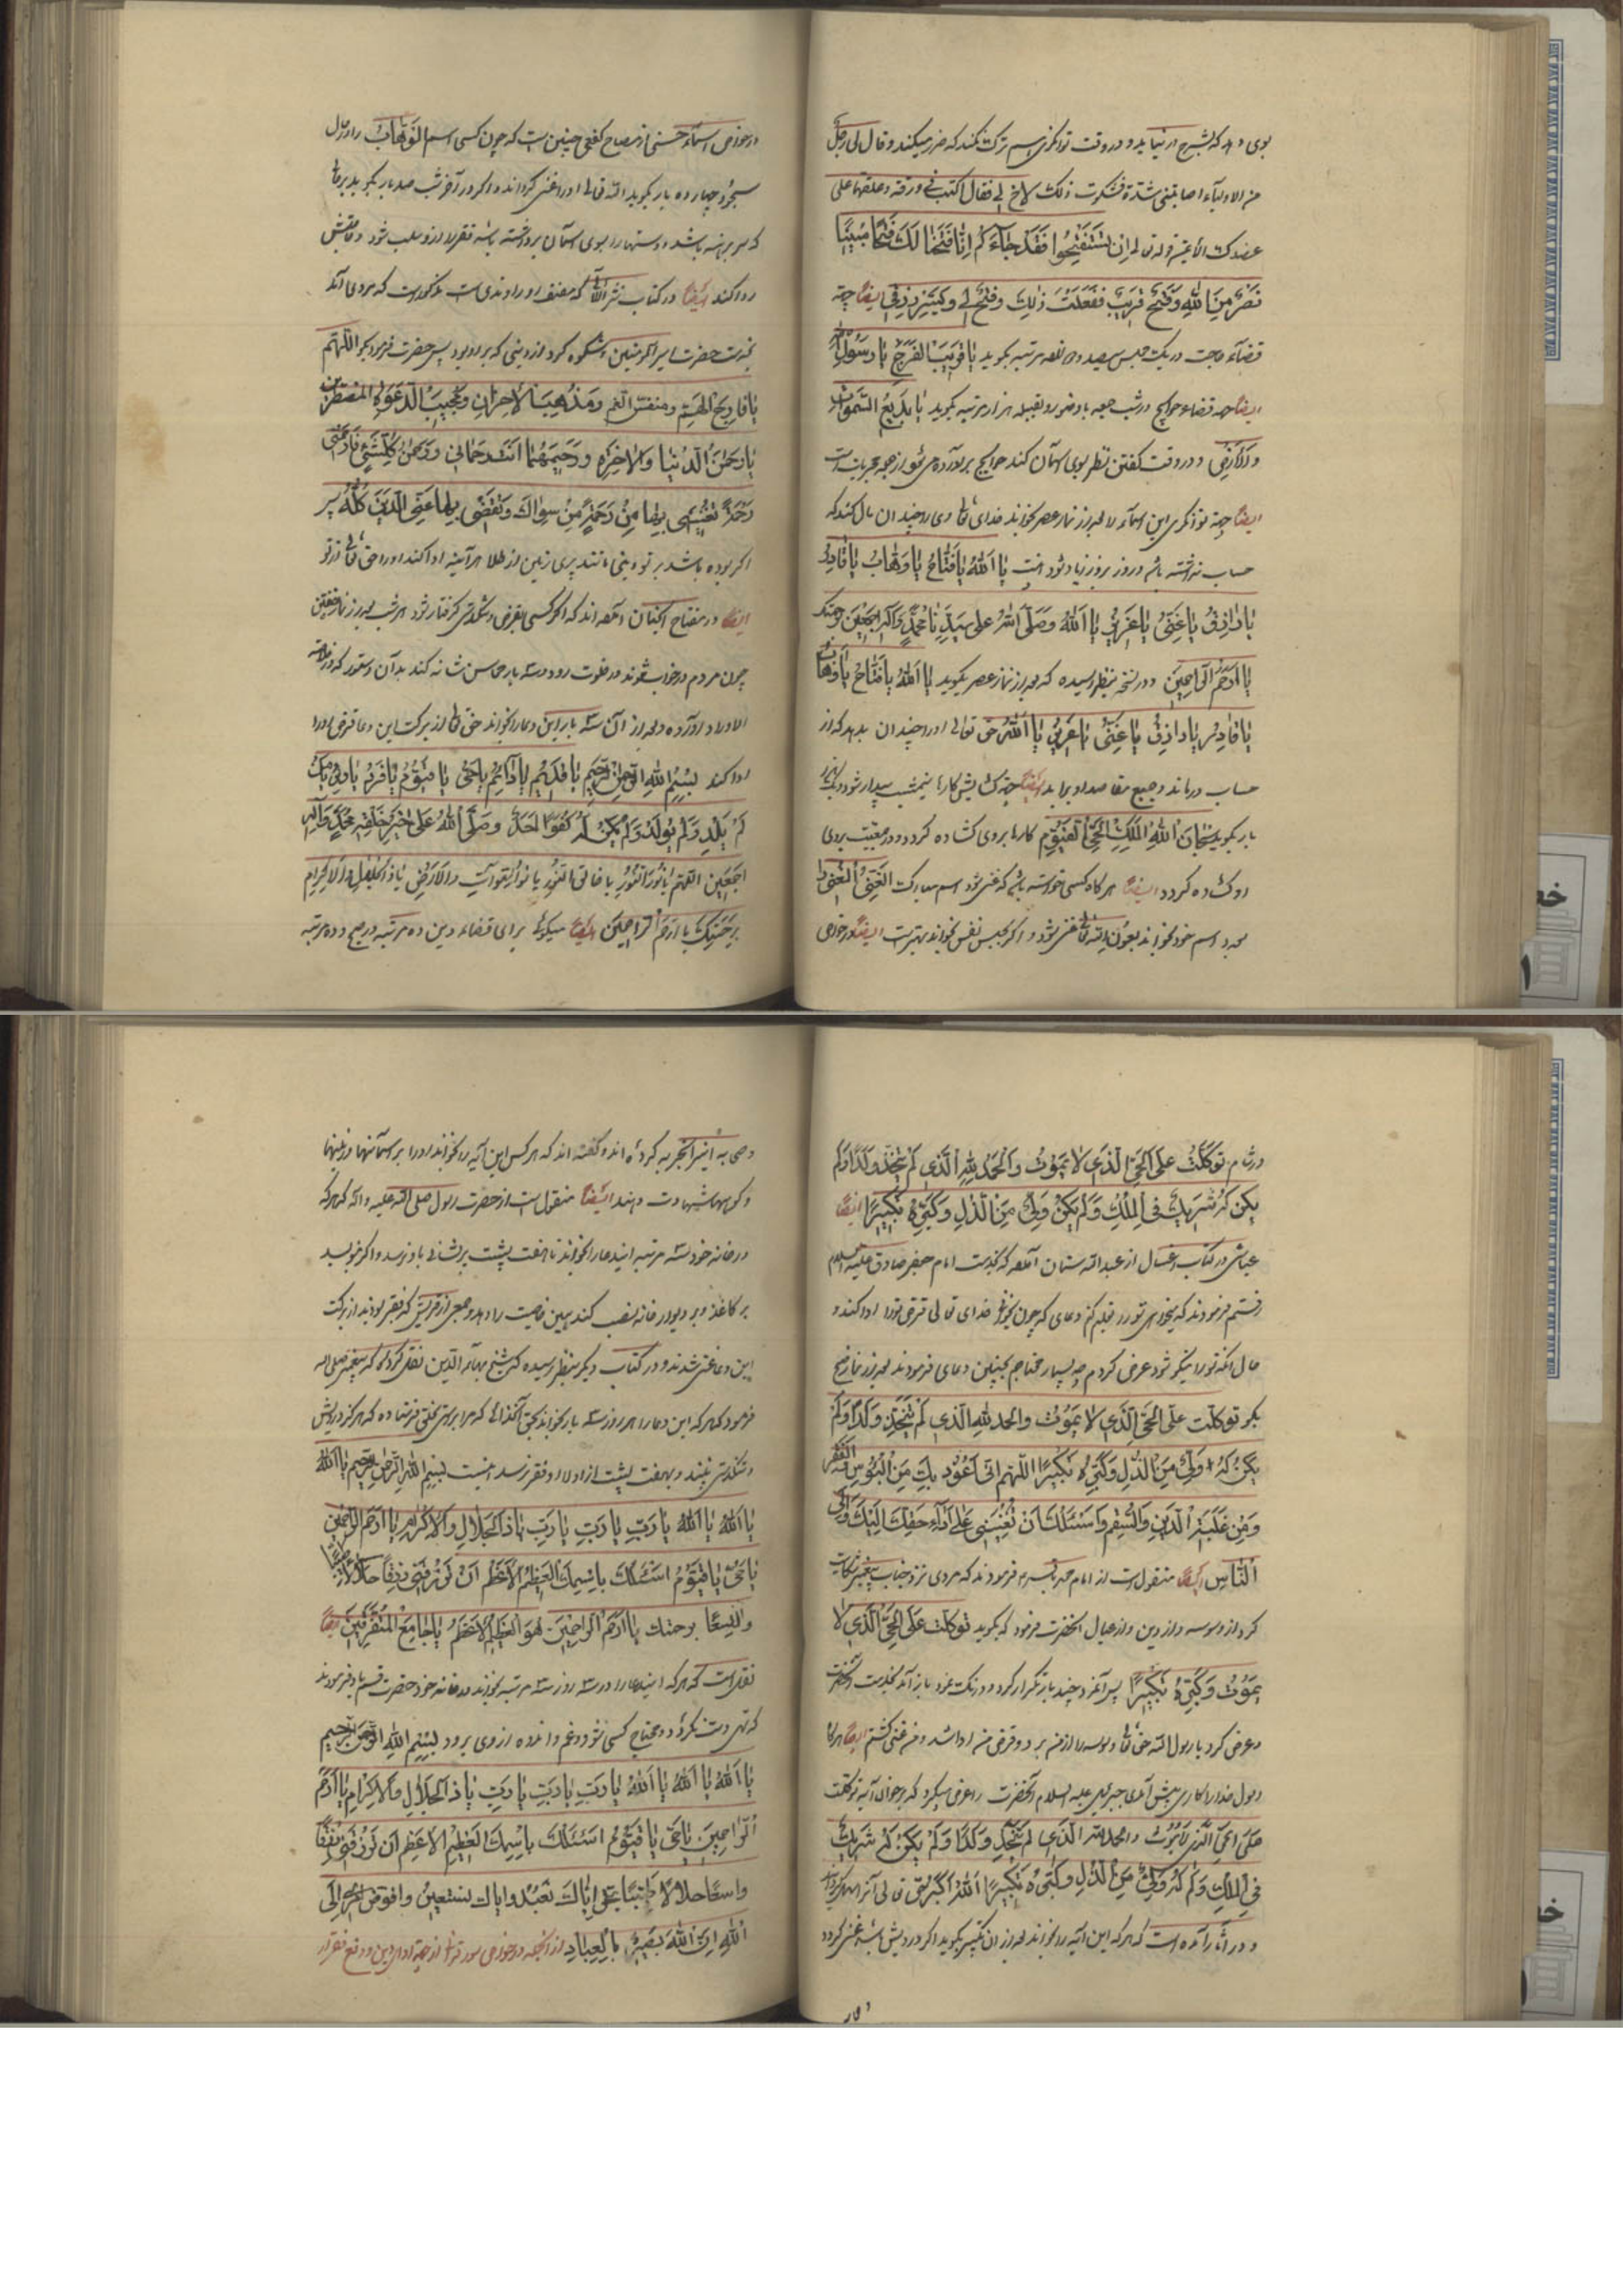 بوی دهد که بشرح در نیاید و در وقت توانگری بسم ترک نکند که ضرر میکند و قال لی رجل
من الاولیاء اصابتنی شدة فشکوت ذلک لاخ لی فقال اکتب فی ورقة و علقها علی
عضدک الأیمن قوله تعالی اِن تَستَفتِحُوا فَقَد جَاءَکُم اِنّا فَتَحنا لَکَ فَتحًا مُبینًا
نَصرٌ مِنَ اللهِ وَفَتحٌ قَریبٌ فَفَعَلتُ ذلِکَ وفتح لی و یُسِّرَ رِزقی ایضًا جهة
قضاء حاجت در یک مجلس سیصد و مرتبه بگوید یا قَریبَ الفَرَجِ یا رَسُولَ اللهِ
ایضًا جهة قضاء حوایج در شب جمعه با وضو رو بقبله هزار مرتبه بگوید یا بَدیعَ السَّمواتِ
وَالاَرضِ و در وقت گفتن نظر بسوی آسمان کند حوایج برآورده می شود از جمله مجربات است
ایضًا جهة توانگری این اسماء را بعد از نماز عصر بخواند خدای تعالی وی را چندان مال کند که
حساب نداشته باشد و روز بروز زیاد شود اینست یا اَللهُ یا فَتّاحُ یا وَهّابُ یا قادِرُ
یا رازِقُ یا غَنِیُّ یا عَزیزُ یا اَللهُ وَصَلَّی اللهُ عَلی سَیِّدِنا مُحَمَّدٍ وَآلِهِ اَجمَعینَ برحمتک
یا اَرحَمَ الرّاحِمینَ و در نسخه بنظر رسیده که بعد از نماز عصر بگوید یا اَللهُ یا فَتّاحُ یا وَهّابُ
یا قادِرُ یا رازِقُ یا غَنِیُّ یا عَزیزُ یا اَللهُ حق تعالی او را چندان بدهد که از
حساب درماند و جمیع مقاصد او براید ایضًا جهة گشایش کارها نیمشب بیدار شود و
بار بگوید سُبحانَ اللهِ المَلِکِ الحَیِّ القَیُّومِ کارها بروی گشاده گردد و در معیشت بروی
گشاده گردد ایضًا هرگاه کسی خواسته باشد که غنی شود اسم مبارک الغَنِیُّ المُغنی را
بعدد اسم خود بخواند بعون الله تعالی غنی شود و اگر بحبس نفس بخواند بهتر است ایضًا در خواص
در خواص اسماء حسنی از مصباح کفعمی چنین است که چون کسی اسم الوَهّابُ را در حال
سجود چهارده بار بگوید الله تعالی او را غنی گرداند و اگر در آخر شب صد بار بگوید
که سر برهنه باشد و دستها را بسوی آسمان برداشته باشد فقر از او سلب شود و حاجتش
روا کند ایضًا در کتاب نثر اللآلی که مصنف او راوندی است مذکور است که مردی آمد
بخدمت حضرت امیرالمؤمنین و شکوه کرد از دینی که بر او بود پس حضرت فرمود بگو اللّهم
یا فارِجَ الهَمِّ ومنفس الغم ومُذهِبَ الاَحزانِ ومُجیبَ الدَّعوَةِ المُضطَرّینَ
یا رَحمنَ الدُّنیا وَالاخِرَةِ وَرَحیمَهُما اَنتَ رَحمانی وَرَحمنُ کُلِّ شَیءٍ فَارحَمنی
رَحمَةً تُغنینی بِها مِن رَحمَةِ مَن سِواکَ وتَقضی بِها عَنِّی الدَّینَ کُلَّهُ پس
اگر بوده باشد بر تو دینی مانند پری زمین از طلا هر آینه ادا کند او را حق تعالی از تو
ایضًا در مفتاح الجنان آمده اند که اگر کسی بقرض و تنگدستی گرفتار شود هر شب بعد از نماز خفتن
چون مردم در خواب شوند در خلوت رود و سه بار محاسن شانه کند بدان دستور که در خلاصة
الاوراد آورده و بعد از آن سه بار این دعا را بخواند حق تعالی از برکت این دعا قرض او را
ادا کند بِسمِ اللهِ الرَّحمنِ الرَّحیمِ یا قَدیمُ یا دائِمُ یا حَیُّ یا قَیُّومُ یا فَردُ یا وِترُ یا مَن
لَم یَلِد وَلَم یُولَد وَلَم یَکُن لَهُ کُفُوًا اَحَدٌ وصَلَّی اللهُ عَلی خَیرِ خَلقِهِ مُحَمَّدٍ وَآلِهِ
اَجمَعینَ اللّهُمَّ یا نُورَ النُّورِ یا خالِقَ النُّورِ یا نُورَ السَّمواتِ والاَرضِ یا ذَا الجَلالِ وَالاِکرامِ
بِرَحمَتِکَ یا اَرحَمَ الرّاحِمینَ ایضًا میگوئی برای قضاء دین ده مرتبه در صبح و ده مرتبه
در شام تَوَکَّلتُ عَلَی الحَیِّ الَّذی لا یَمُوتُ وَالحَمدُ لِلّهِ الَّذی لَم یَتَّخِذ وَلَدًا وَلَم
یَکُن لَهُ شَریکٌ فِی المُلکِ وَلَم یَکُن لَهُ وَلِیٌّ مِنَ الذُّلِّ وَکَبِّرهُ تَکبیرًا ایضًا
عیاشی در کتاب از عبدالله سنان آمده که بخدمت امام جعفر صادق علیه السلام
رفتم فرمودند که میخواهی تو را تعلیم کنم دعای که چون بخوانی خدای تعالی قرض تو را ادا کند و
حال تو را نیکو شود عرض کردم چه بسیار محتاجم بچنین دعای فرمودند بعد از نماز صبح
بگو تَوَکَّلتُ عَلَی الحَیِّ الَّذی لا یَمُوتُ والحَمدُ للهِ الَّذی لَم یَتَّخِذ وَلَدًا وَلَم
یَکُن لَهُ وَلِیٌّ مِنَ الذُّلِّ وَکَبِّرهُ تَکبیرًا اللّهُمَّ اِنّی اَعُوذُ بِکَ مِنَ البُؤسِ وَالفَقرِ
وَمِن غَلَبَةِ الدَّینِ والسُّقمِ وَاَسئَلُکَ اَن تُعینَنی عَلی اَداءِ حَقِّکَ اِلَیکَ وَاِلَی
النّاسِ ایضًا منقول است از امام محمد باقر فرمودند که مردی نزد جناب پیغمبر شکایت
کرد از وسوسه و از دین و از عیال آنحضرت فرمود که بگوید تَوَکَّلتُ عَلَی الحَیِّ الَّذی لا
یَمُوتُ وَکَبِّرهُ تَکبیرًا پس آنمرد چند بار تکرار کرد و درنگ نمود باز آمد بخدمت آنحضرت
و عرض کرد یا رسول الله حق تعالی وسوسه را از من برد و قرض من ادا شد و من غنی گشتم ایضًا هرگاه
رسول خدا را کاری پیش آمدی جبرئیل علیه السلام آنحضرت را عرض میکرد که بخوان آیه تَوَکَّلتُ
عَلَی الحَیِّ الَّذی لا یَمُوتُ والحَمدُ للهِ الَّذی لَم یَتَّخِذ وَلَدًا وَلَم یَکُن لَهُ شَریکٌ
فِی المُلکِ وَلَم یَکُن لَهُ وَلِیٌّ مِنَ الذُّلِّ وَکَبِّرهُ تَکبیرًا اَللهُ اَکبَرُ حق تعالی آنرا
و در آثار آمده است که هر که این آیه را بخواند بعد از آن تکبیر بگوید اگر درویش باشد غنی گردد
و گفته اند که هر کس این آیه را بخواند او را بر آسمانها و زمینها
و کوهها شهادت دهند ایضًا منقول است از حضرت رسول صلی الله علیه وآله که هر که
در خانه خود سه مرتبه ایندعا را بخواند تا هفت پشت پریشانی باو نرسد و اگر بنویسد
بر کاغذ و بر دیوار خانه نصب کند همین خاصیت را دهد و جمعی از قریش که فقیر بودند از برکت
این دعا غنی شدند و در کتاب دیگر بنظر رسیده که شیخ بهاء الدین نقل کرده که پیغمبر صلی الله
فرمود که هر که این دعا را هر روز سه بار بخواند بحق آنخدائی که مرا براستی بخلق فرستاده که هرگز درویشی
و تنگدستی نبیند و بهفت پشت از اولاد او فقر نرسد اینست بِسمِ اللهِ الرَّحمنِ الرَّحیمِ یا اَللهُ
یا اَللهُ یا اَللهُ یا رَبِّ یا رَبِّ یا رَبِّ یا ذَا الجَلالِ وَالاِکرامِ یا اَرحَمَ الرّاحِمینَ
یا حَیُّ یا قَیُّومُ اَسئَلُکَ بِاسمِکَ العَظیمِ الاَعظَمِ اَن تَرزُقَنی رِزقًا حَلالًا طَیِّبًا
واسِعًا برحمتک یا اَرحَمَ الرّاحِمینَ لهو العَظیمُ الاَعظَمُ یا جامِعَ المُتَفَرِّقینَ ایضًا
نقل است که هر که ایندعا را در سه روز سه مرتبه بخواند در خانه خود حضرت قسم یاد فرمودند
که تهی دست نگردد و محتاج کسی نشود و غم و اندوه از وی برود بِسمِ اللهِ الرَّحمنِ الرَّحیمِ
یا اَللهُ یا اَللهُ یا اَللهُ یا رَبِّ یا رَبِّ یا رَبِّ یا ذَا الجَلالِ وَالاِکرامِ یا اَرحَمَ
الرّاحِمینَ یا حَیُّ یا قَیُّومُ اَسئَلُکَ بِاسمِکَ العَظیمِ الاَعظَمِ اَن تَرزُقَنی رِزقًا
واسِعًا حَلالًا طَیِّبًا اِیّاکَ نَعبُدُ وَاِیّاکَ نَستَعینُ وَاُفَوِّضُ اَمری اِلَی
اللهِ اِنَّ اللهَ بَصیرٌ بِالعِبادِ از آنجمله در خواص سور قرآن از جهة ادای دین و دفع فقر